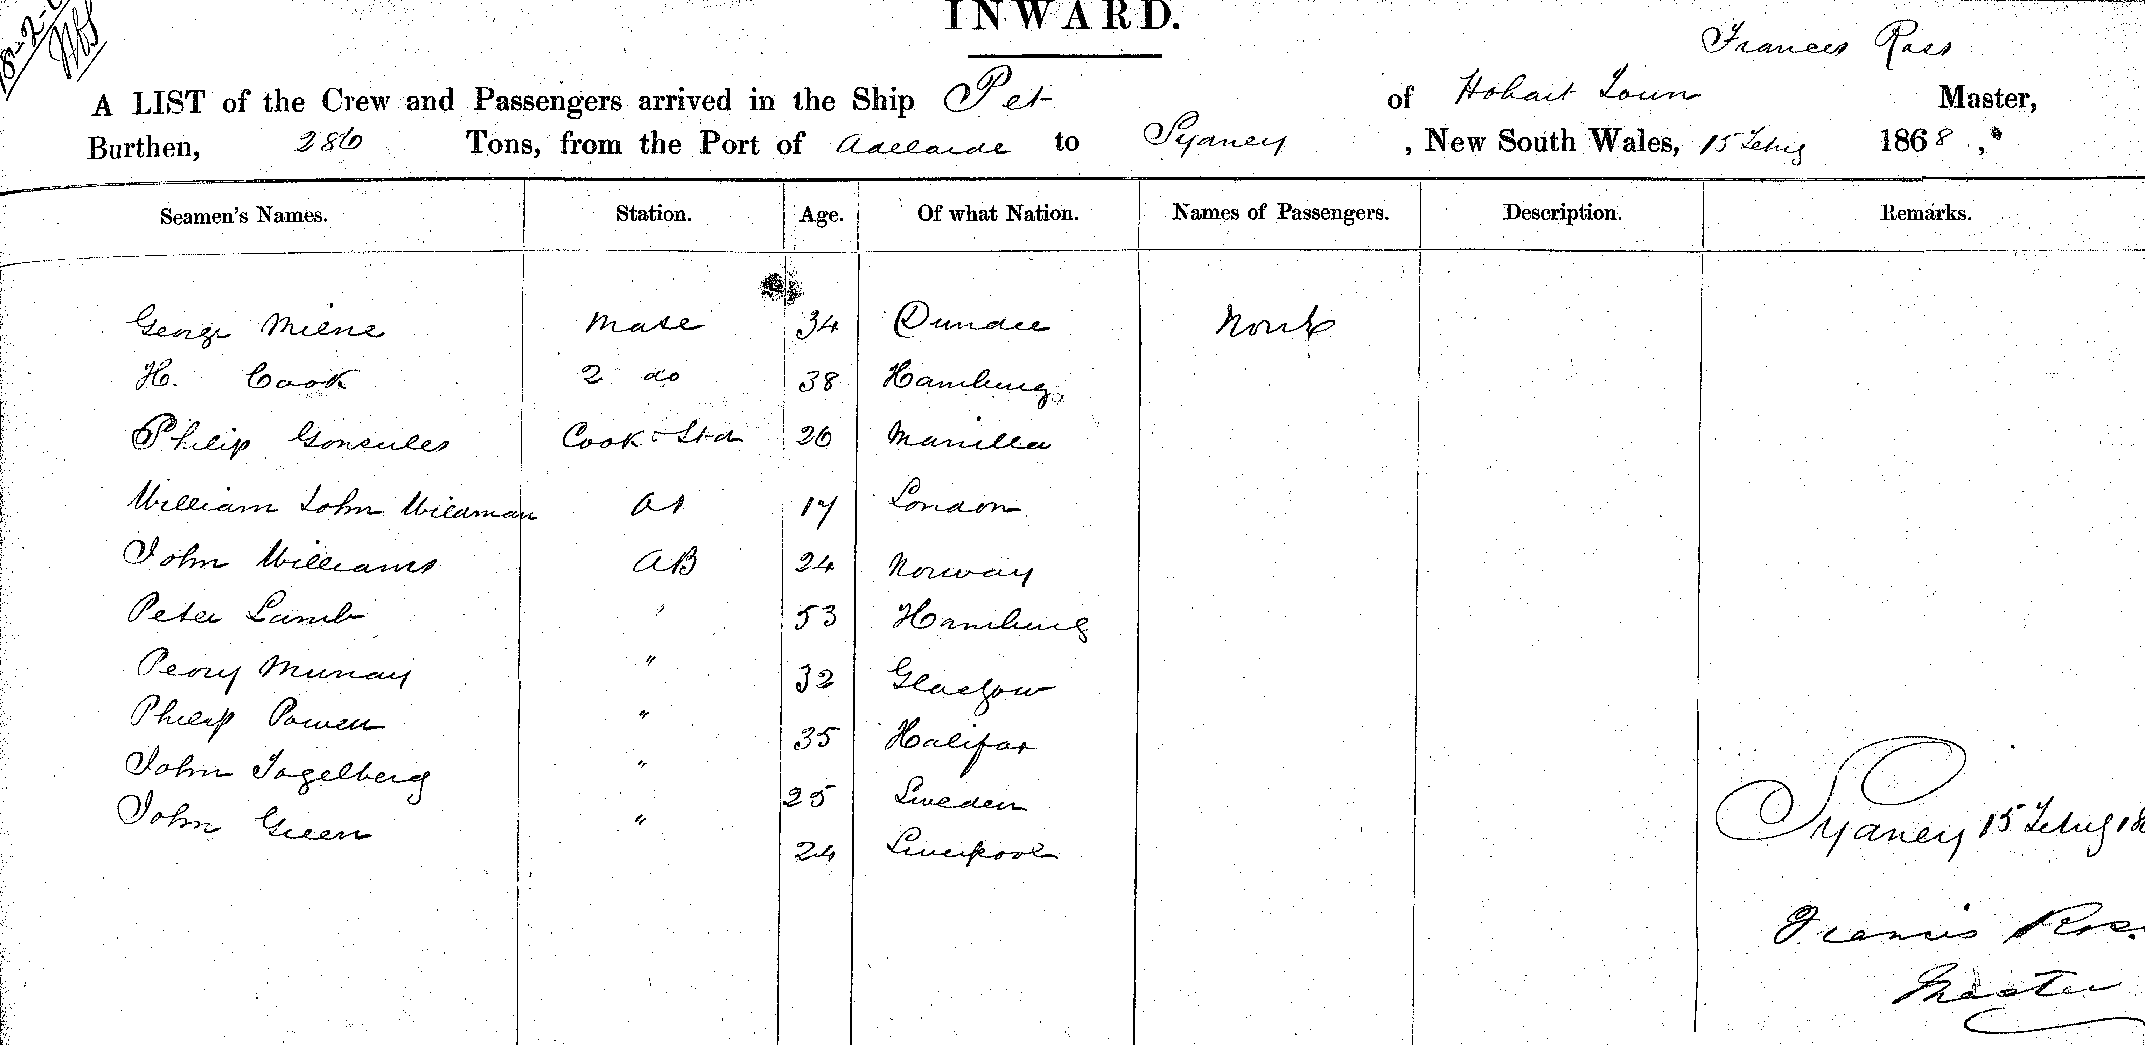 INWARD.
Frances Ross
A LIST of the Crew and Passengers arrived in the Ship Pet of Hobart Town Master,
Burthen, 286 Tons, from the Port of Adelaide to Sydney , New South Wales, 15 Febry 1868 ,
Seamen's Names. Station. Age. Of what Nation. Names of Passengers. Description. Remarks.
George Milne Mate 34 Dundee None
H. Cook 2 do 38 Hamburg
Philip Gonsules Cook & Std 26 Manilla
William John Wildman 17 London
John Williams AB 24 Norway
Peter Lamb " 53 Hamburg
Murray " 32 Glasgow
Philip Power " 35 Halifax
John Fogelberg " 25 Sweden
John Green " 24 Liverpool
Sydney 15 Febry 18
Francis Ross
Master